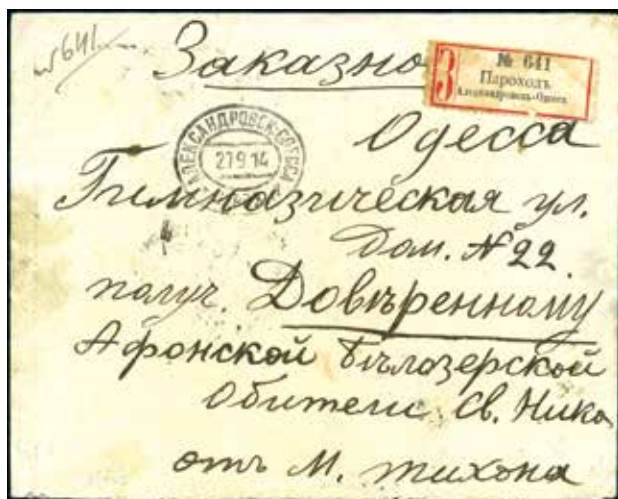 №641
Заказно
З
№ 641
Пароходъ
Александровскъ-Одесса
АЛЕКСАНДРОВСК-ОДЕССА
27 9 14
Одесса
Гимназическая ул.
Дом. № 22.
получ. Довѣренному
Афонской Бѣлозерской
Обители Св. Нико
отъ М. Тихона